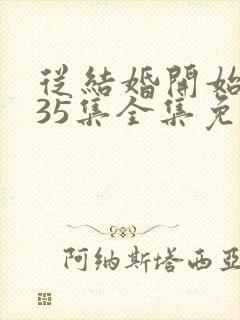 從結婚開始
35集全集免
阿纳斯塔西亚